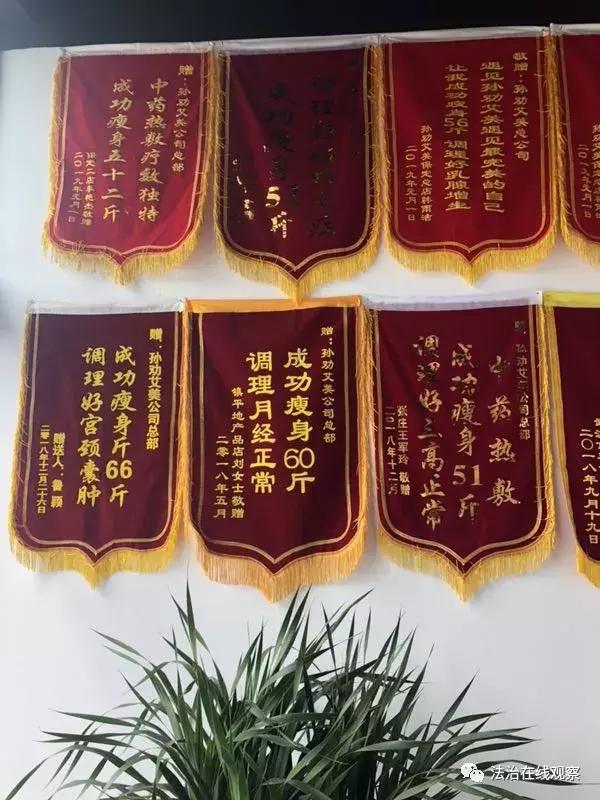 赠：孙劝艾美公司总部
中药热敷疗效独特
成功瘦身五十二斤
保定二店李艳杰敬赠
二〇一九年元月一日
调理
成功瘦身5斤
敬赠：孙劝艾美公司
遇见孙劝艾美遇见最完美的自己
让我成功瘦身56斤 调理好乳腺增生
孙劝艾美保定总店韩雨洁
二〇一九年元月一日
赠：孙劝艾美公司总部
成功瘦身斤66斤
调理好宫颈囊肿
赠送人：鲁颖
二零一八年十二月二十六日
赠：孙劝艾美公司总部
成功瘦身60斤
调理月经正常
镇平地产品店刘女士敬赠
二零一八年五月
赠：孙劝艾美公司总部
中药热敷
成功瘦身51斤
调理好三高正常
张庄王军玲 敬赠
二〇一八年十二月
二〇一八年九月十九日
法治在线观察